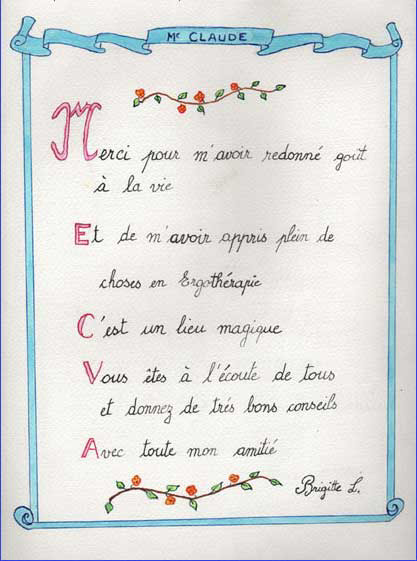 Mᶜ CLAUDE
Merci pour m'avoir redonné goût
à la vie
Et de m'avoir appris plein de
choses en Ergothérapie
C'est un lieu magique
Vous êtes à l'écoute de tous
et donnez de trés bons conseils
Avec toute mon amitié
Brigitte L.